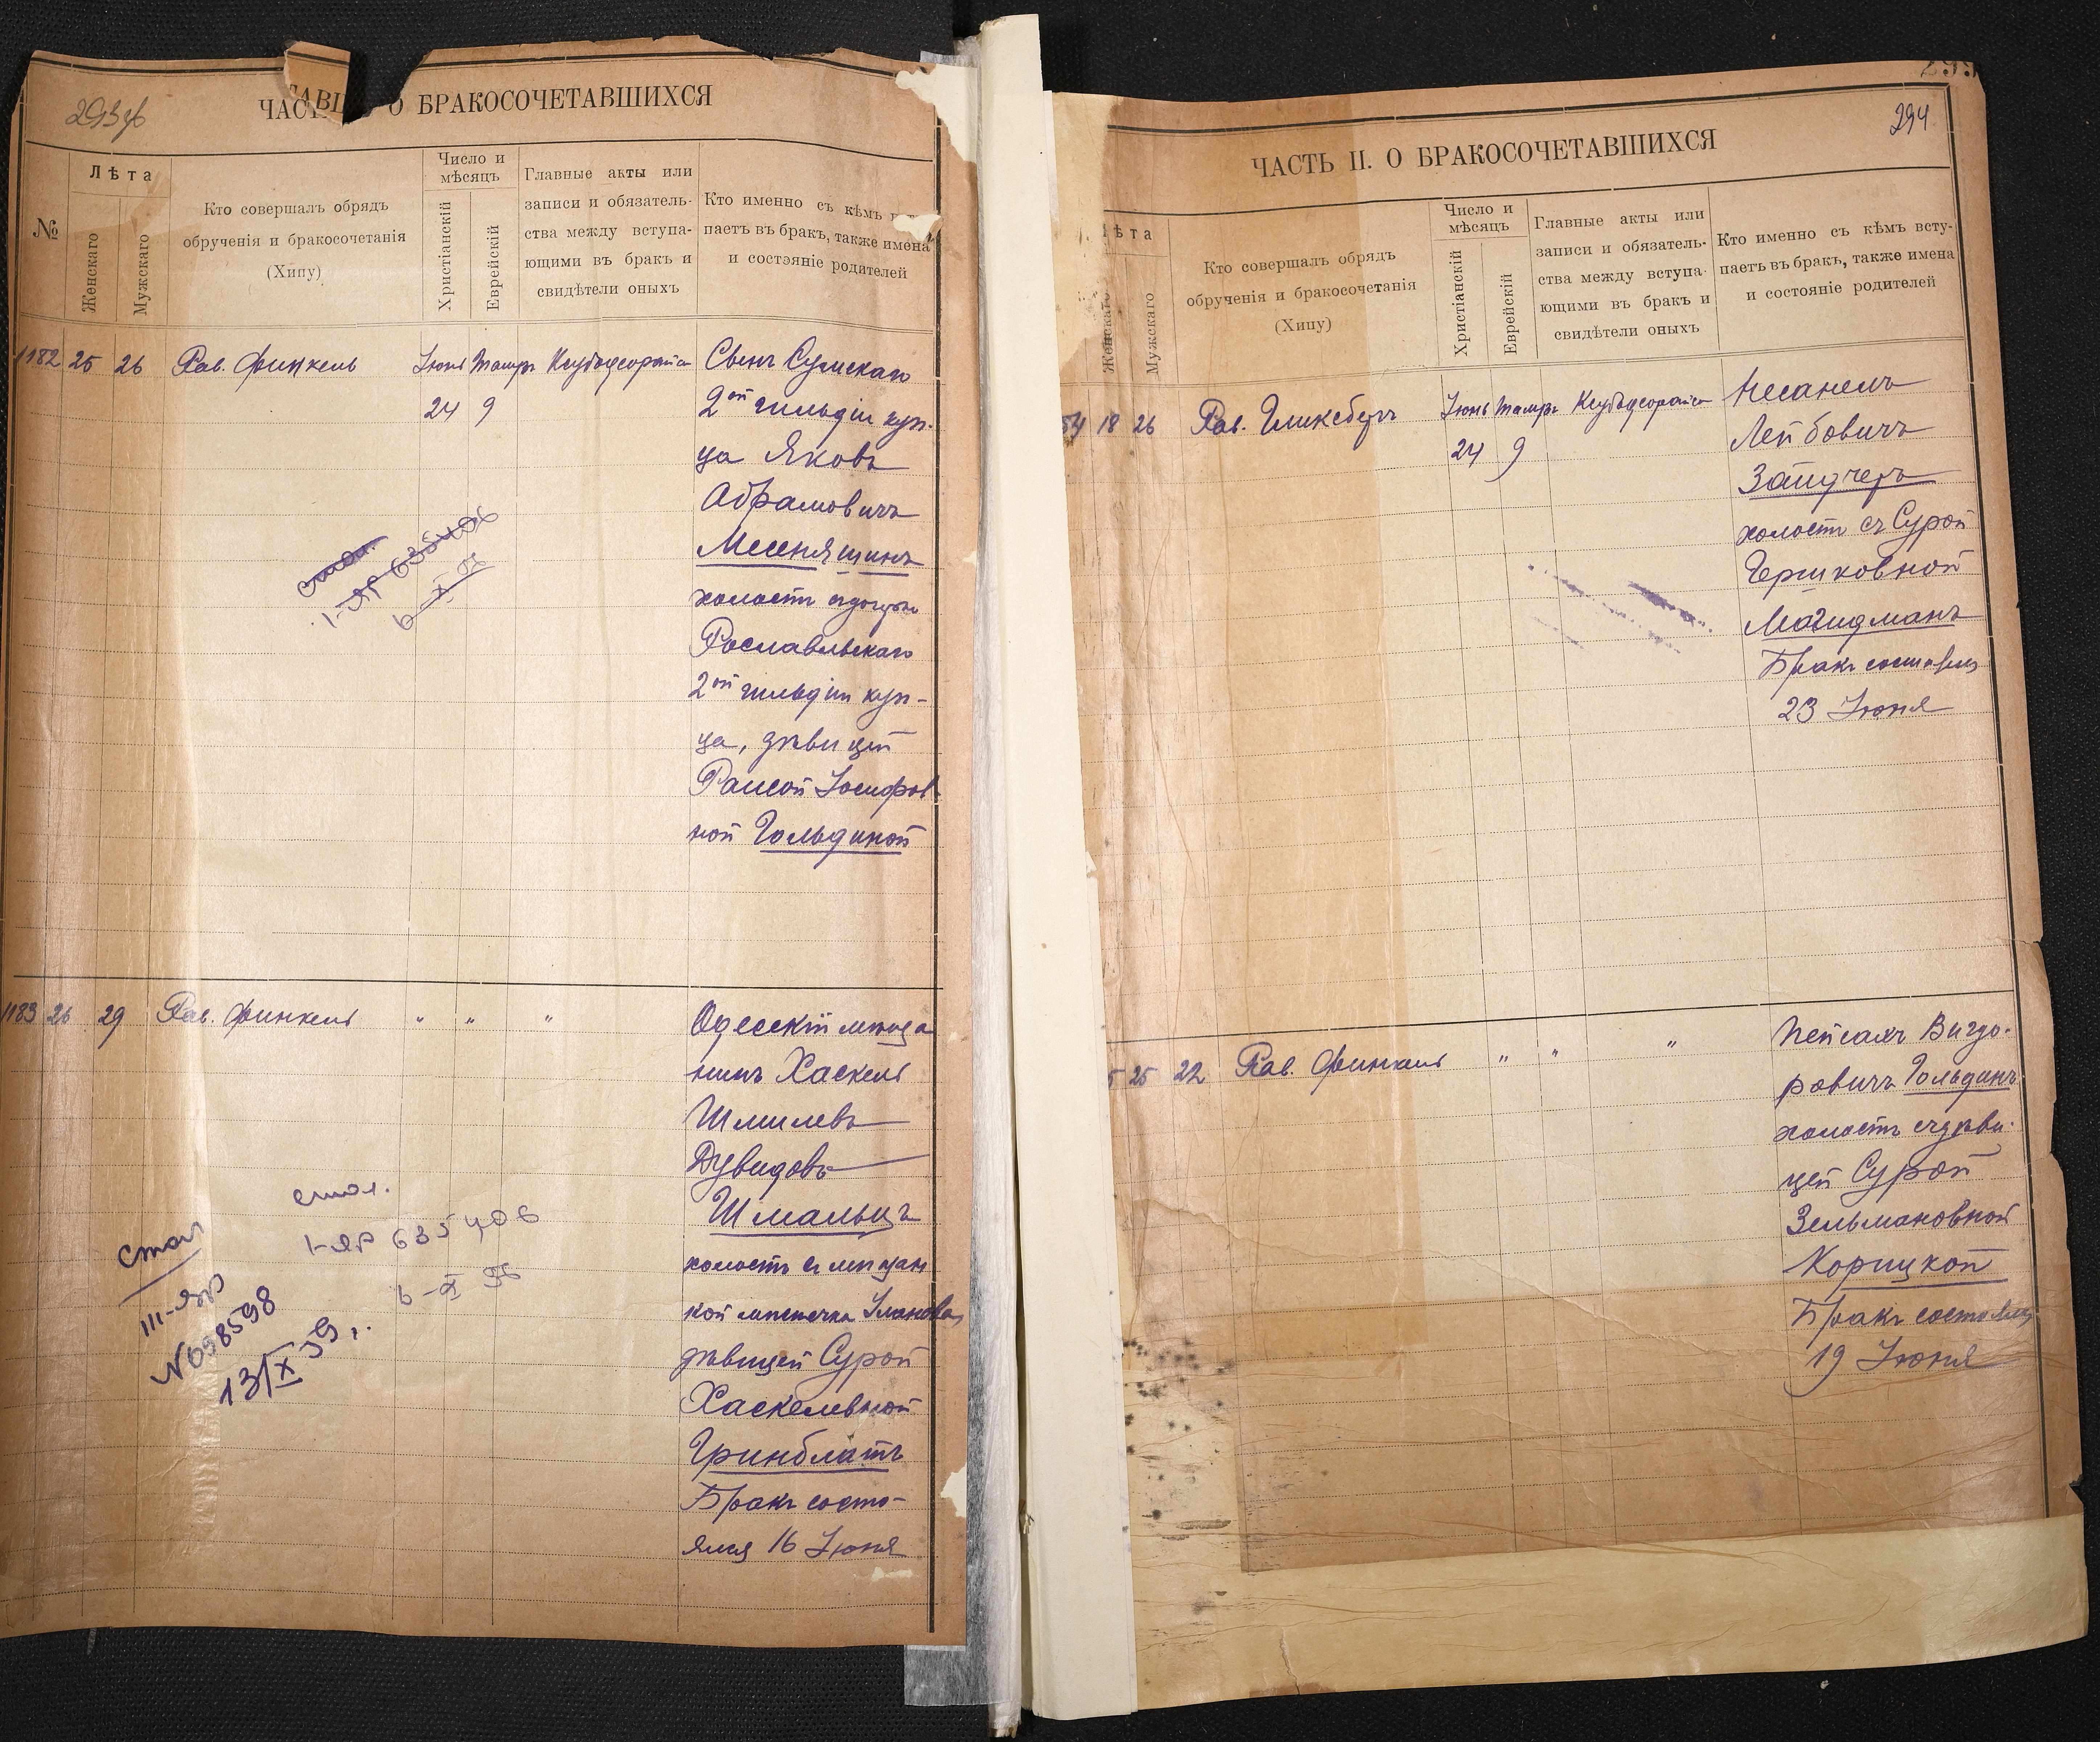 293 об
ЧАСТ О БРАКОСОЧЕТАВШИХСЯ
№
Лѣта
Женскаго
Мужскаго
Кто совершалъ обрядъ
обрученія и бракосочетанія
(Хипу)
Число и
мѣсяцъ
Христіанскій
Еврейскій
Главные акты или
записи и обязатель-
ства между вступа-
ющими въ бракъ и
свидѣтели оныхъ
Кто именно съ кѣмъ
паетъ въ бракъ, также имена
и состояніе родителей
1182 25 26 Рав. Финкель Іюнь Тамузъ
24 9
Сынъ Сумскаго
2ой гильдіи куп-
ца Яковъ
Абрамовичъ
Месеняшинъ
холостъ съ дочерью
Рославльскаго
2ой гильдіи куп-
ца, дѣвицей
Раисой Іосифов-
ной Гольдиной
1-ЯР 635406
6-X 56
1183 26 29 Рав. Финкель " " "
Одесскій мѣща
нинъ Хаскель
Шмилевъ
Дувидовъ
Шмальцъ
холостъ съ мѣщан
кой мѣстечка
дѣвицей Сурой
Хаскелевной
Гринблатъ
Бракъ состо-
ялся 16 Іюня
1-ЯР 635406
6-X 56
III-ЯР
N698598
13/X 59
294
ЧАСТЬ II. О БРАКОСОЧЕТАВШИХСЯ
ѣта
Женскаго
Мужскаго
Кто совершалъ обрядъ
обрученія и бракосочетанія
(Хипу)
Число и
мѣсяцъ
Христіанскій
Еврейскій
Главные акты или
записи и обязатель-
ства между вступа-
ющими въ бракъ и
свидѣтели оныхъ
Кто именно съ кѣмъ всту-
паетъ въ бракъ, также имена
и состояніе родителей
84 18 26 Рав. Гликсбергъ Іюнь Тамузъ
24 9
Несанель
Лейбовичъ
Зайдчеръ
холостъ съ Сурой
Гершковной
Магидманъ
Бракъ состоялся
23 Іюня
5 25 22 Рав. Финкель " " "
Пейсахъ Вигдо-
ровичъ Гольдинъ
холостъ съ дѣви-
цей Сурой
Зельмановной
Корицкой
Бракъ состоялся
19 Іюня